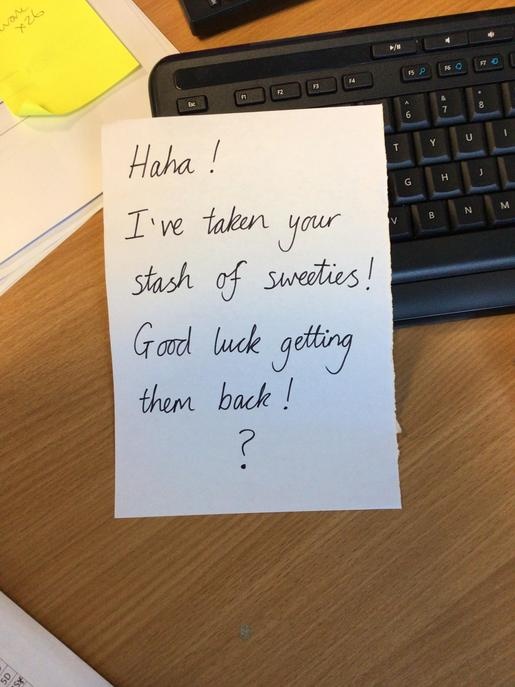 Haha !
I've taken your
stash of sweeties!
Good luck getting
them back!
?
x26
Esc
F1
F2
F3
F4
F5
F6
F7
^
6
&
7
*
8
T
Y
U
I
G
H
J
V
B
N
M